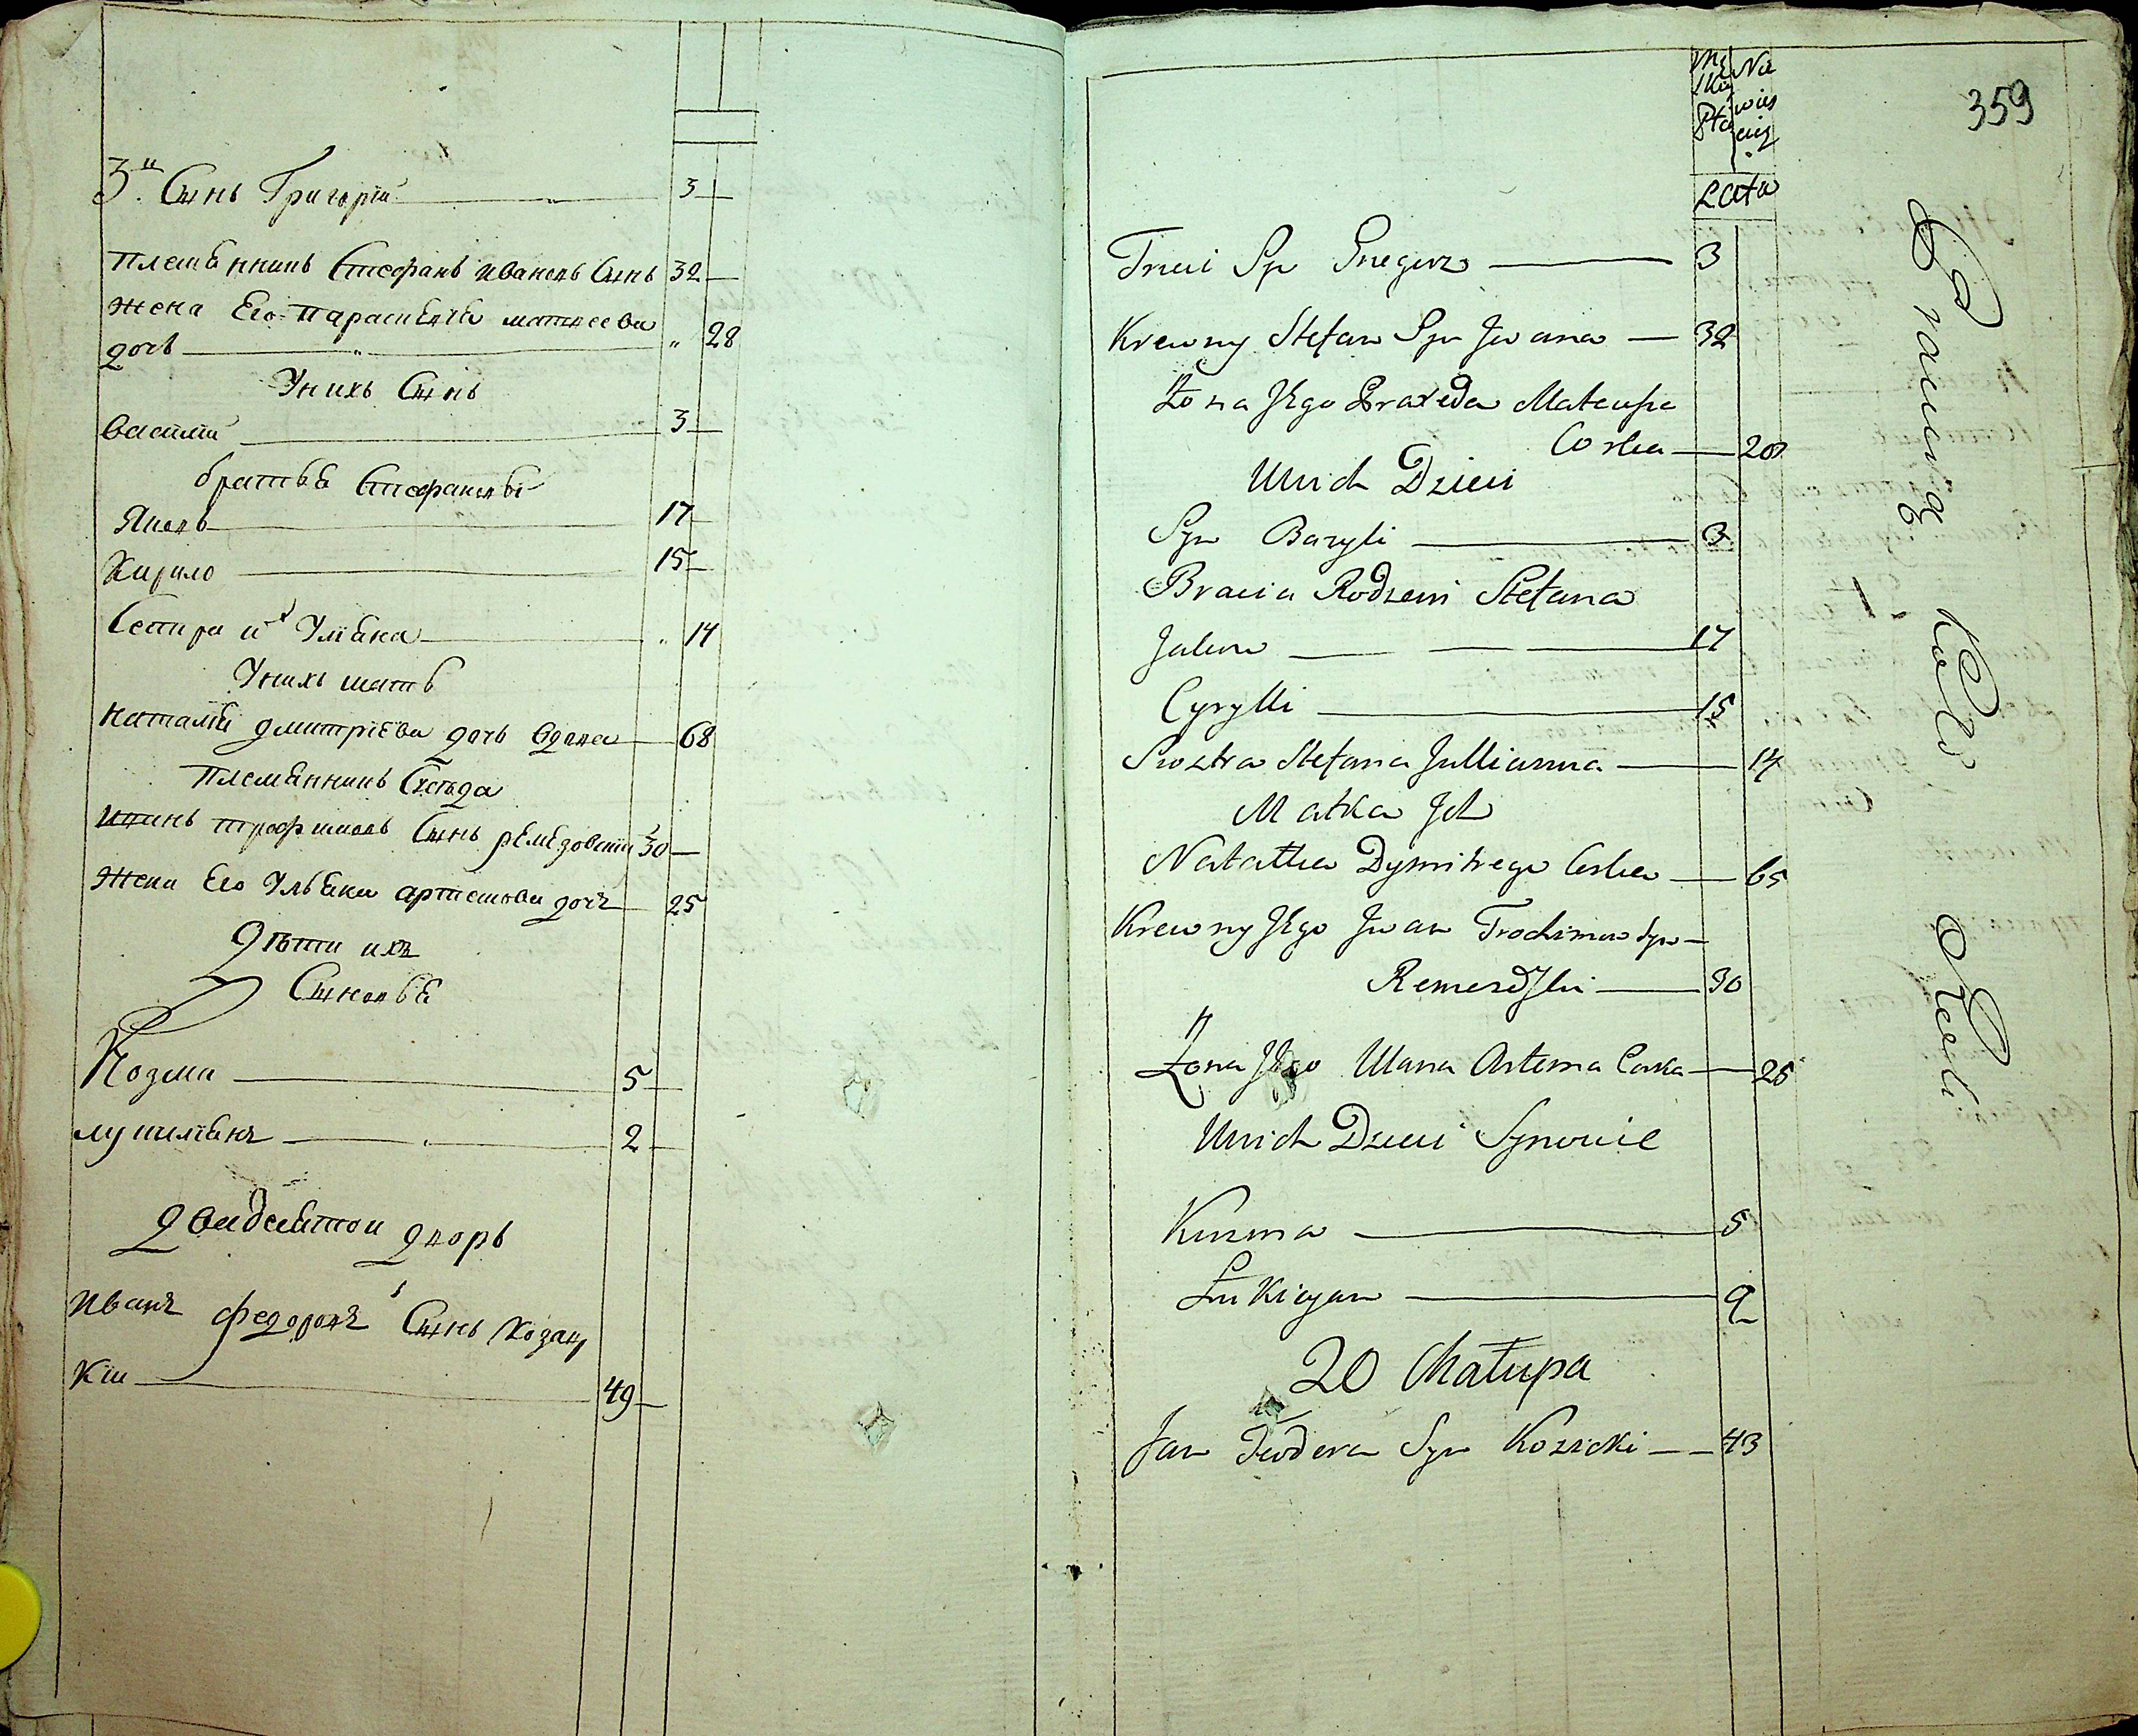 3й. Сынъ Григорій 3
племѣнникъ Стефанъ Ивановъ Сынъ 32
жена Его Параскевія матвеева
дочь " 28
У нихъ Сынъ
василій 3
братья Стефановы
Яковъ 17
Кирило 15
Сестра их Уліана " 14
У нихъ мать
Наталія дмитріева дочь вдова 68
Племянникъ Сосѣда
Иванъ трофимовъ Сынъ ремѣзовскій 30
Жена Его Ульяна артемова дочъ 25
Дѣти ихъ
Сыновья
Козма 5
лукиліанъ 2
Двадцятой дворъ
Иванъ федоровъ Сынъ Козац
кій 49
359
Męz
ska
Płci
Nie
wies
ciej
Lata
Trzeci Syn Gregorz 3
Krewny Stefan Syn Jwana 32
Żona Jego Praxeda Mateusza
Corka 28
U nich Dzieci
Syn Bazyli 3
Bracia Rodzeni Stefana
Jakow 17
Cyrylli 15
Siostra Stefana Jullianna 14
Matka Jch
Natalka Dymitrego Corka 65
Krewny Jego Jwan Trochimow Syn
Remezoski 30
Żona Jego Ulana Artema Corka 25
U nich Dzieci Synowie
Kuzma 5
Łukiyan 2
20 Chałupa
Jan Teodora Syn Kozicki 43